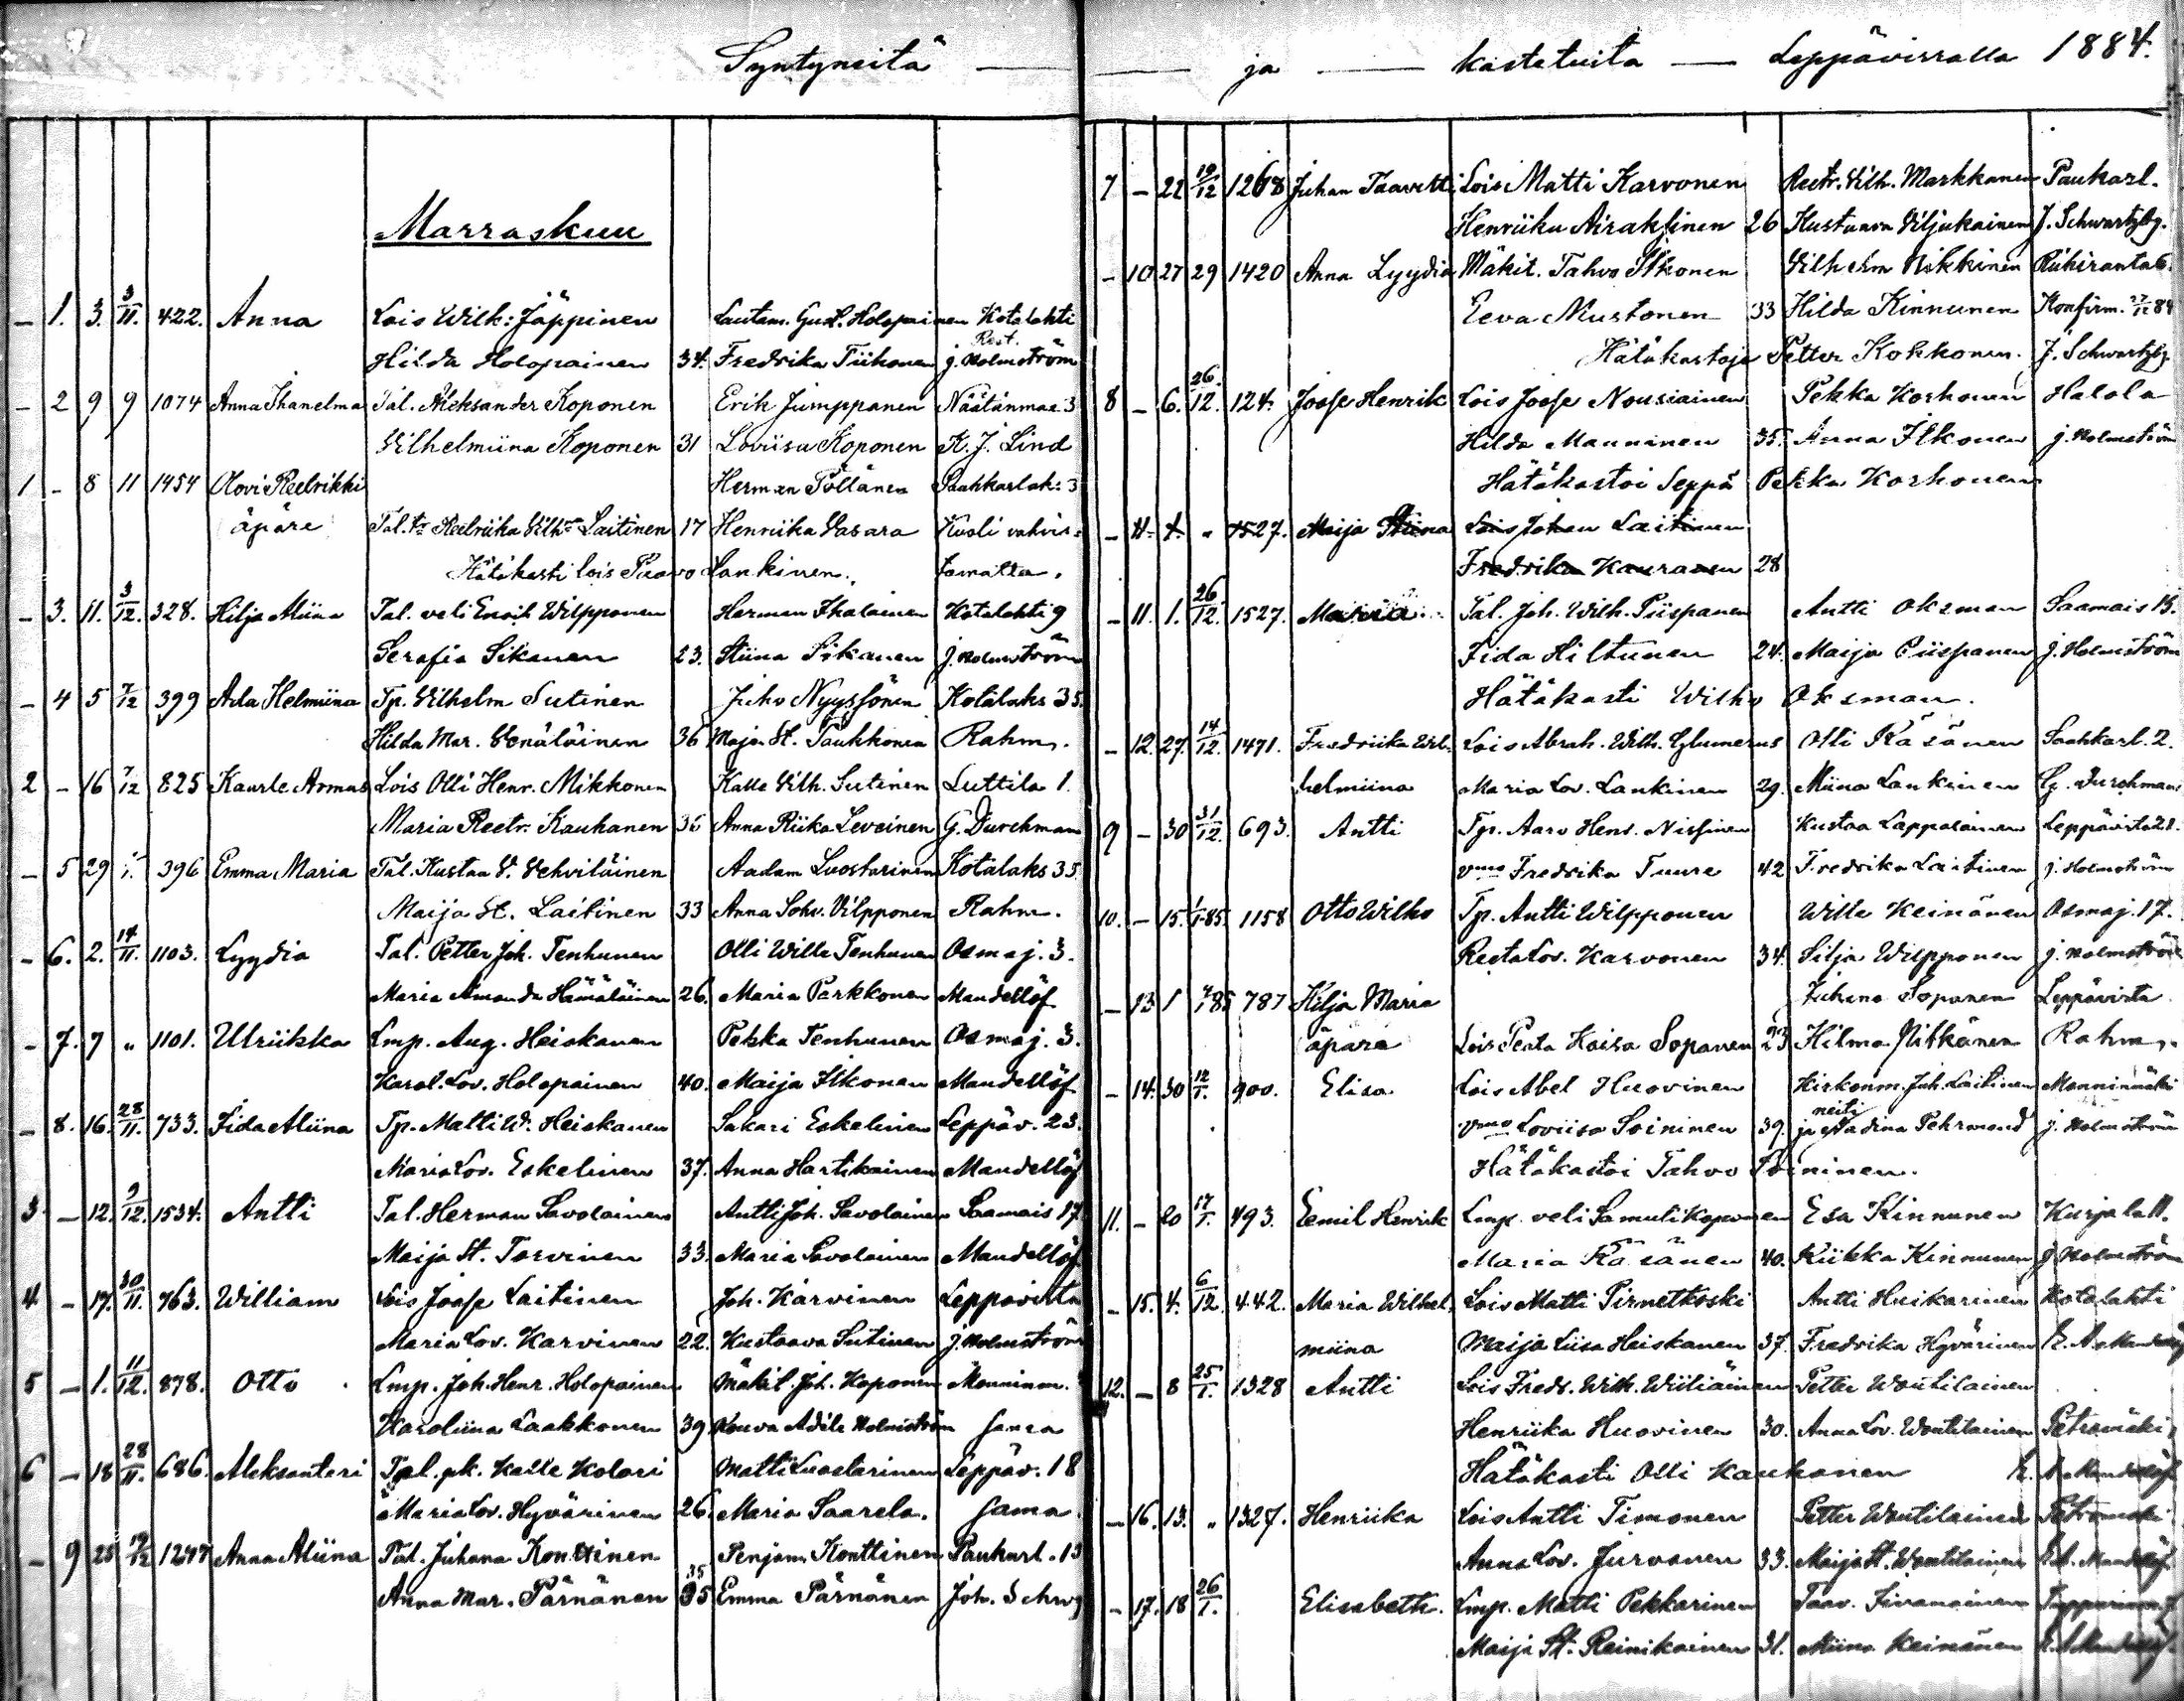 Syntyneitä — ja — kastetuita — Leppävirralla 1884.
Marraskuu
- 1. 3. 3/11. 422. Anna Lois Wilk: Jäppinen Lautam. Gust. Holopainen Kotalahti
Hilda Holopainen 34. Fredrika Tiihonen j. Holmström
- 2 9 9 1074 Anna Ihanelma Tal. Aleksander Koponen Erik Jumppanen Näätänmaa 3
Vilhelmiina Koponen 31 Loviisa Koponen K. J. Lind
1 - 8 11 1454 Olovi Reetrikki Herman Pöllänen Saahkarlah: 3
äpäre Tal. tr Reetriika Vilh:a Laitinen 17 Henriika Vasara Kuoli vahvis=
Hätäkasti lois Paavo Lankinen. tamatta.
- 3. 11. 3/12. 328. Hilja Miina Tal. veli Enok Wilpponen Herman Ikalainen Kotalahti 9
Serafia Sikanen 23. Stiina Sikanen J. Holmström
- 4 5 7/12 399 Ada Helmiina Tp. Vilhelm Sutinen Juho Nyyssönen Kotalaks 35.
Hilda Mar. Venäläinen 36 Maja St. Paukkonen Rahm.
2 - 16 7/12 825 Kaarle Armas Lois Olli Henr. Mikkonen Kalle Vilh. Sutinen Luttila 1.
Maria Reetr. Kauhanen 36 Anna Riika Leveinen G. Durchman
- 5 29 396 Emma Maria Tal. Kustaa V. Vehviläinen Aadam Luostarinen Kotalaks 35
Maija St. Laitinen 33 Anna Sohv. Vilpponen Rahm.
- 6. 2. 14/11. 1103. Lyydia Tal. Petter Joh. Tenhunen Olli Wille Tenhunen Osmaj. 3.
Maria Amanda Hämäläinen 26. Maria Parkkonen Mandellöf
- 7. 7 „ 1101. Ulriikka Lmp. Aug. Heiskanen Pekka Tenhunen Osmaj. 3.
Karol. Lov. Holopainen 40. Maija Itkonen Mandellöf
- 8. 16. 28/11. 733. Fida Aliina Tp. Matti W. Heiskanen Sakari Eskelinen Leppäv. 23.
Maria Lov. Eskelinen 37. Anna Hartikainen Mandellöf
3 - 12. 9/12. 1534. Antti Tal. Herman Savolainen Antti Joh. Savolainen Saamais 17
Maija St. Torvinen 33. Maria Savolainen Mandellöf
4 - 17. 30/11. 763. William Lois Joose Laitinen Joh. Karvinen Leppävirta
Maria Lov. Karvinen 22. Kustaava Sutinen j. Holmström
5 - 1. 11/12. 878. Otto Lmp. Joh. Henr. Holopainen Mäkit. Joh. Koponen Monninm.
Karoliina Laakkonen 39 Rouva Adéle Holmström sama
6 - 18 28/11. 686. Aleksanteri Tal. pk. Kalle Kolari Matti Luostarinen Leppäv. 18
Maria Lov. Hyvärinen 26. Maria Saarela. sama
- 9 25 1247 Anna Aliina Tal. Juhana Konttinen Penjam Konttinen Paukarl. 13
Anna Mar. Pärnänen 35 Emma Pärnänen Joh. Schwg
7 - 22 19/12 1268 Juhan Taavetti Lois Matti Karvonen Reetr. Vilh. Markkanen Paukarl.
Henriika Airaksinen 26 Kustaava Viljukainen J. Schwartzbg.
- 10 27 29 1420 Anna Lyydia Mäkit. Tahvo Itkonen Vilhelm Nikkinen Riihiranta 6.
Eeva Mustonen 33 Hilda Kinnunen Konfirm.
Hätäkastoja Petter Kokkonen. J. Schwartzbg.
8 - 6. 26./12. 124. Joose Henrik Lois Joose Nousiainen Pekka Korhonen Halola
Hilda Manninen 35. Anna Itkonen j. Holmström
Hätäkastoi Seppä Pekka Korhonen
- 11. 1. „ 1527. Maija Stiina Lois Johan Laitinen
Fredrika Kauranen 28
- 11. 1. 26/12. 1527. Maria Tal. Joh. Wilh. Piispanen Antti Oksman Saamais 15.
Fida Hiltunen 24. Maija Piispanen j. Holmström
Hätäkasti Wilho Oksman.
- 12. 27. 14/12. 1471. Fredriika Wil- Lois Abrah. Wilh. Glumerus Olli Räsänen Saahkarl. 2.
helmiina Maria Lov. Lankinen 29. Miina Lankinen G. Durchman
9 - 30 31/12. 693. Antti Tp. Aaro Henr. Nissinen Kustaa Lappalainen Leppävirta 21.
vmo Fredrika Tuure 42 Fredrika Laitinen j. Holmström
10. - 15. 1/1-85. 1158 Otto Wilho Tp. Antti Wilpponen Wille Keinänen Osmaj. 17.
Reeta Lov. Karvonen 34. Silja Wilpponen j. Holmström
- 13 1 7/1 85 787 Hilja Maria Juhana Soponen Leppävirta
äpära Lois Peata Kaisa Soponen 23 Hilma Pitkänen Rahm.
- 14. 30 12/1. 900. Elisa Lois Abel Huovinen Kirkonm. Joh. Laitinen Monninmäki
vmo Loviisa Soininen 39. ja neiti Nadina Pehrmand j. Holmström
Hätäkastoi Tahvo Soininen.
11. - 20 17/1. 493. Eemil Henrik Lmp. veli Samuli Koponen Esa Kinnunen Kurjala 11.
Maria Räsänen 40. Riikka Kinnunen J. Holmström
- 15. 4. 6/12. 442. Maria Wilhel- Lois Matti Pirnetkoski Antti Huikarinen Kotalahti
miina Maija Liisa Heiskanen 37. Fredrika Hyvärinen E. A. Mandellöf
12. - 8 25/1. 1328 Antti Lois Fredr. Wilh. Wiitiäinen Petter Woutilainen
Henriika Huovinen 30. Anna Lov. Woutilainen Petromäki
Hätäkasti Olli Kaukonen E. A. Mandellöf
- 16. 13. „ 1327. Henriika Lois Antti Timonen Petter Woutilainen Petromäki
Anna Lov. Jurvanen 33. Maija St. Woutilainen E. A. Mandellöf
- 17. 18 26/1. Elisabeth. Lmp. Matti Pekkarinen Taav.
Maija St. Reinikainen 31. Miina Keinänen E. A. Mandellöf